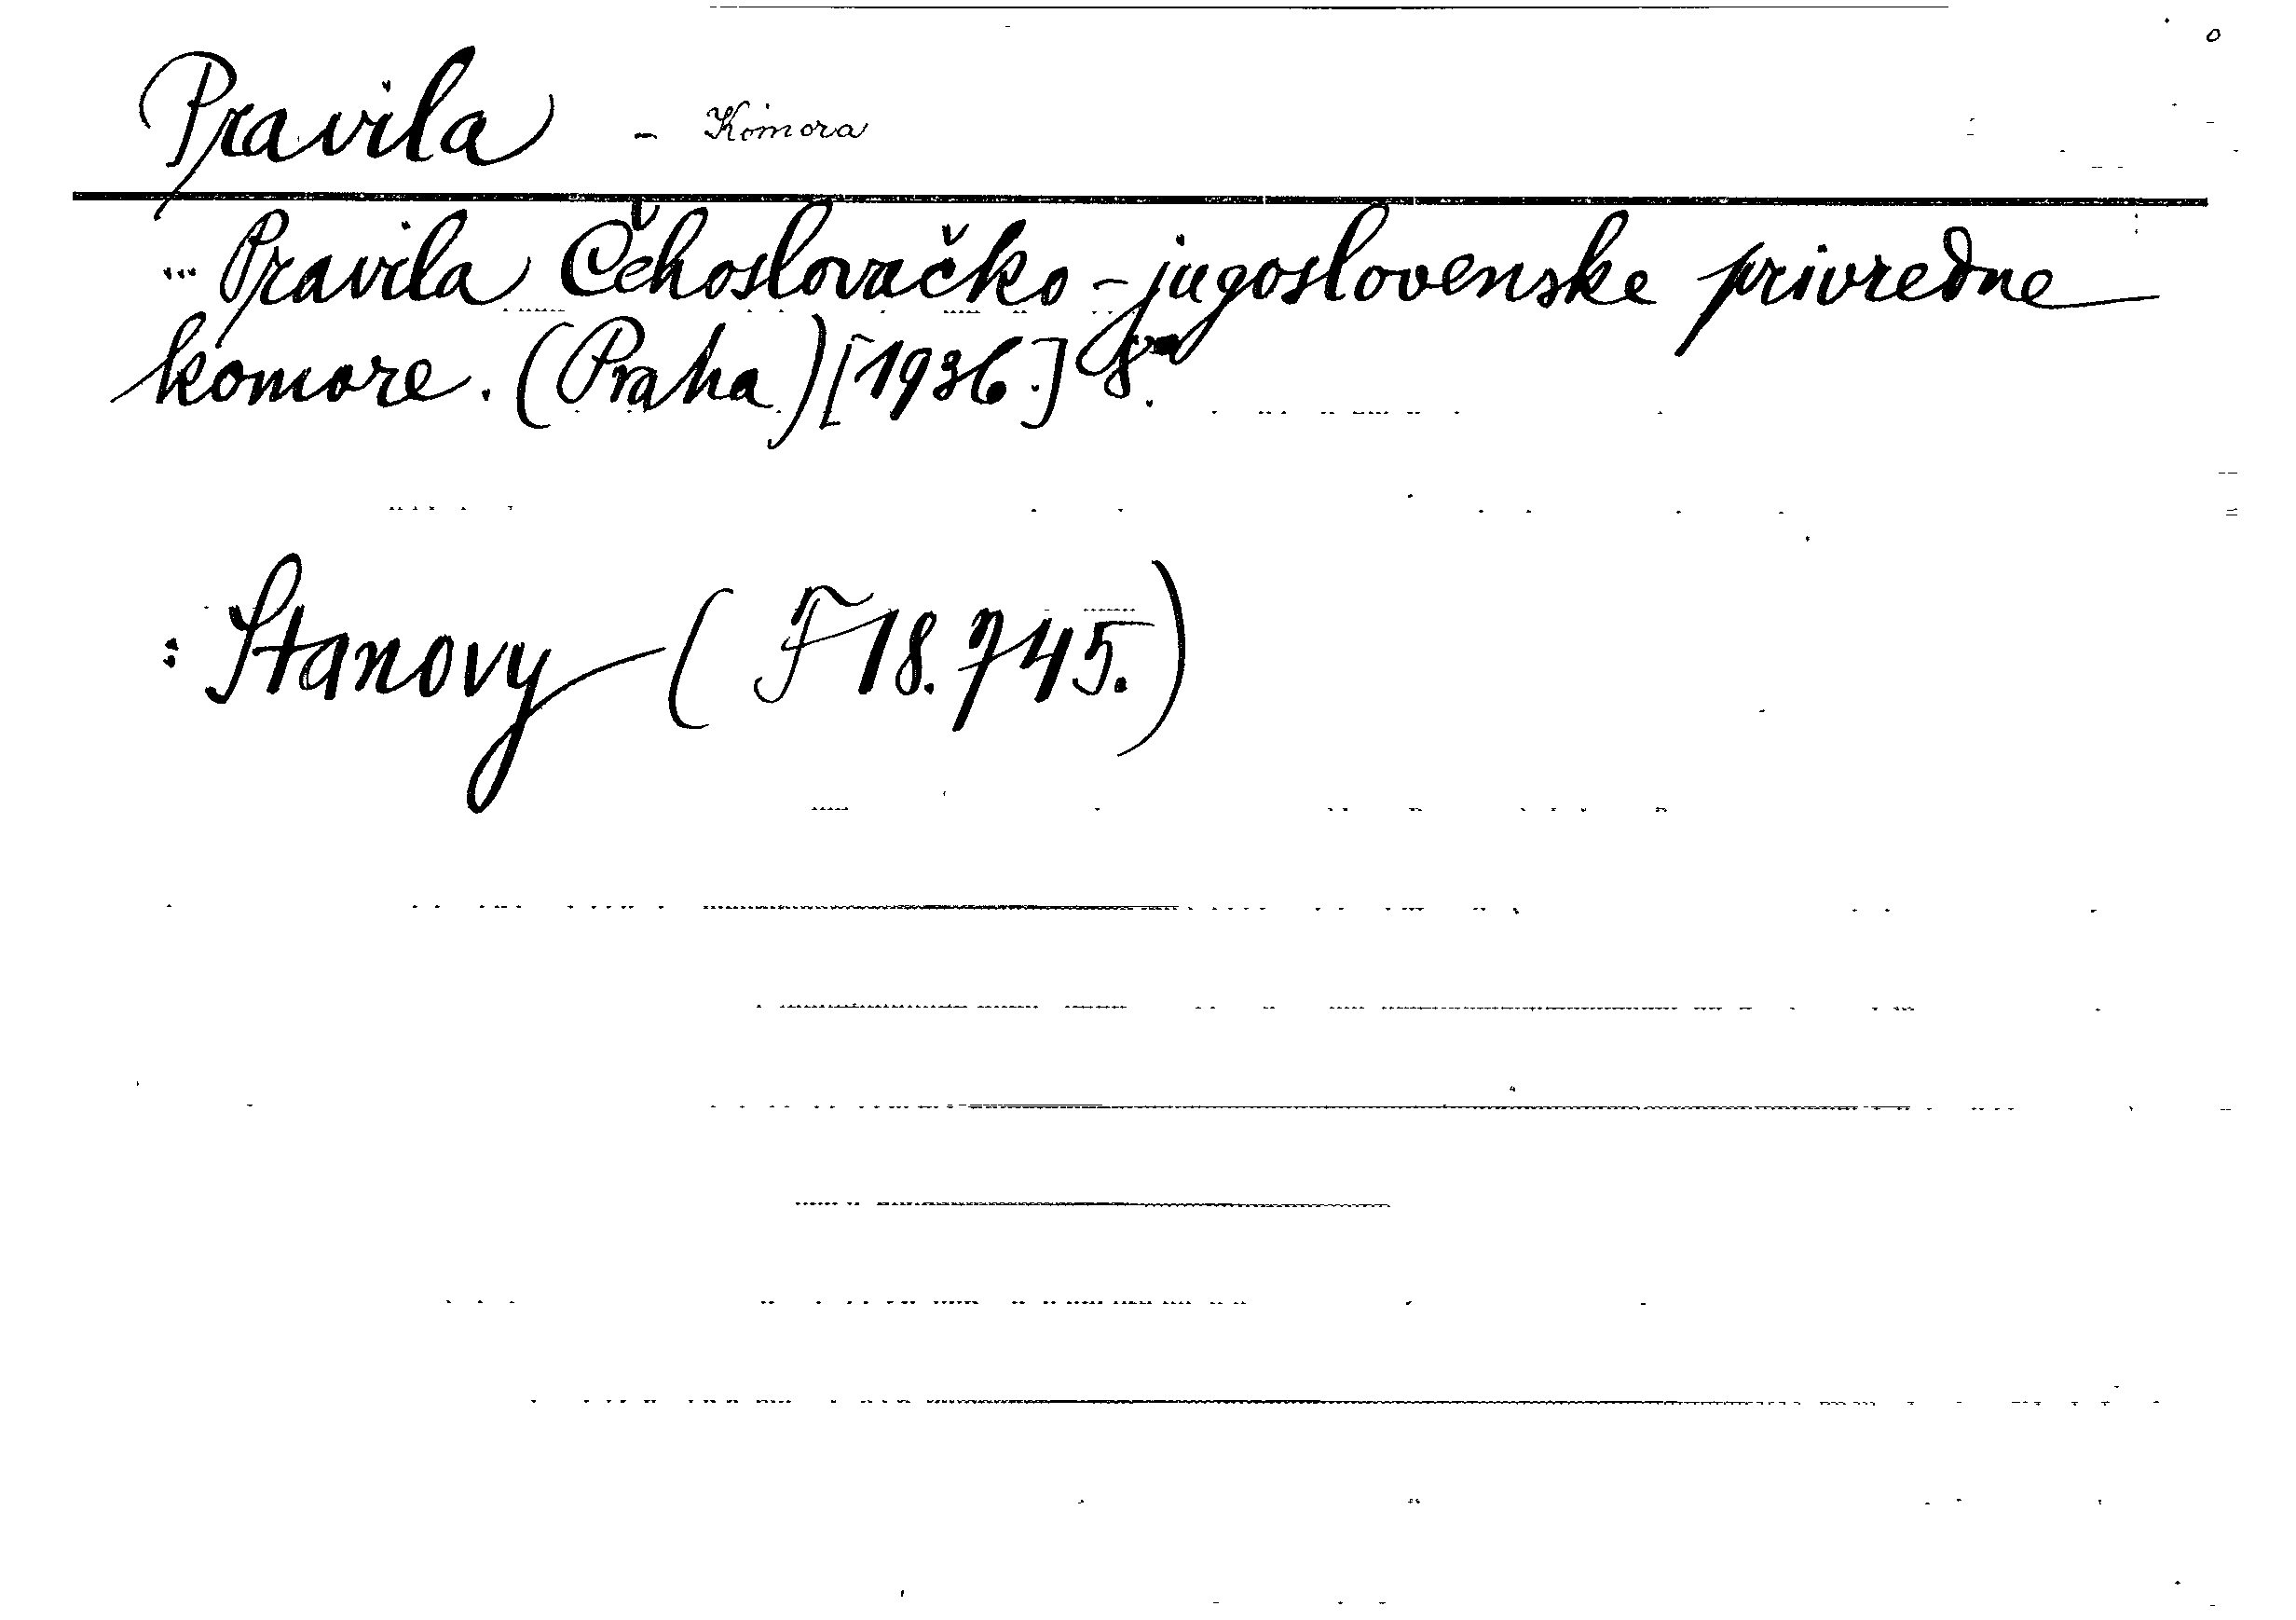 Pravila - Komora
... Pravila Čehoslovačko-jugoslovenske privredne
komore. (Praha) [1936.] 8°.
: Stanovy (F 18.745.)